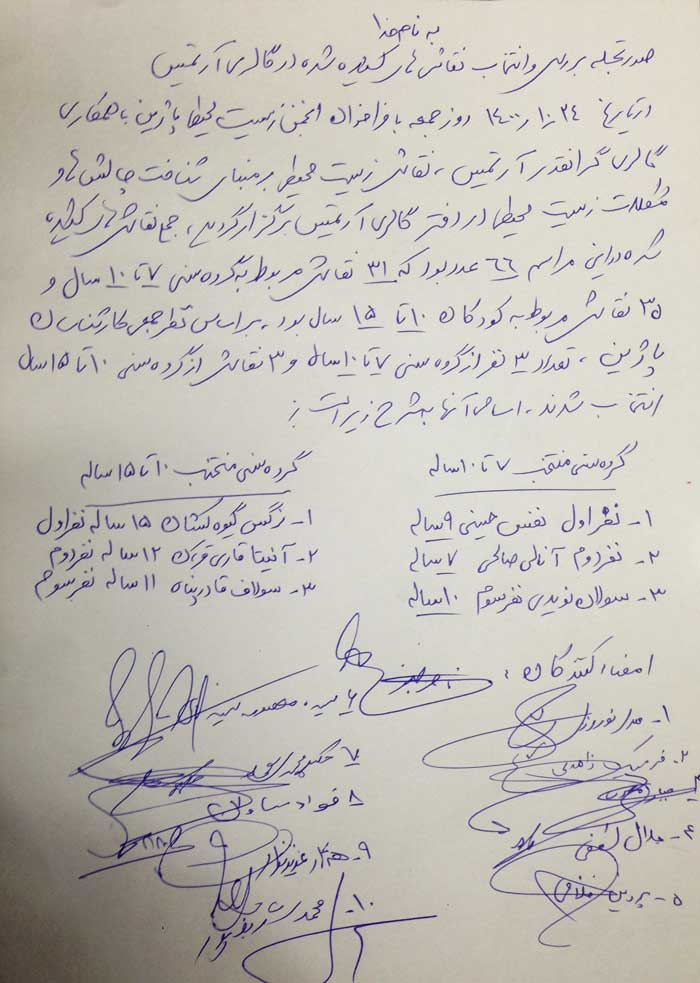 به نام خدا
صورتجلسه بررسی و انتخاب نقاشی های کشیده شده در گالری آرتمیس
در تاریخ ۱۴۰۰/۱۰/۲۴ روز جمعه با فراخوان انجمن زیست محیطی پاژین با همکاری
گالری گرانقدر آرتمیس ، نقاشی زیست محیطی بر مبنای شناخت چالش ها و
مشکلات زیست محیطی در دفتر گالری آرتمیس برگزار گردید، جمع نقاشی های کشیده
شده در این مراسم ۶۶ عدد بود که ۳۱ نقاشی مربوط به گروه سنی ۷ تا ۱۰ سال و
۳۵ نقاشی مربوط به کودکان ۱۰ تا ۱۵ سال بود. بر اساس نظر جمعی کارشناسان
پاژین ، تعداد ۳ نفر از گروه سنی ۷ تا ۱۰ سال و ۳ نقاشی از گروه سنی ۱۰ تا ۱۵ سال
انتخاب شدند. اسامی آنها به شرح زیر است :
گروه سنی منتخب ۷ تا ۱۰ ساله
۱- نفر اول نفس حسینی ۹ ساله
۲- نفر دوم آنالی صالحی ۷ ساله
۳- سولان نویدی نفر سوم ۱۰ ساله
گروه سنی منتخب ۱۰ تا ۱۵ ساله
۱- نرگس گیوه کشان ۱۵ ساله نفر اول
۲- آنیتا قاری قرآن ۱۲ ساله نفر دوم
۳- سولاف قادرپناه ۱۱ ساله نفر سوم
امضاء کنندگان :
۱- نوروزی
۲- فرمیسک زاهدی
۴- جلال لطفی
۵- پروین غلامی
۷-
۸- فواد
۹- عزیزی
۱۰- محمد